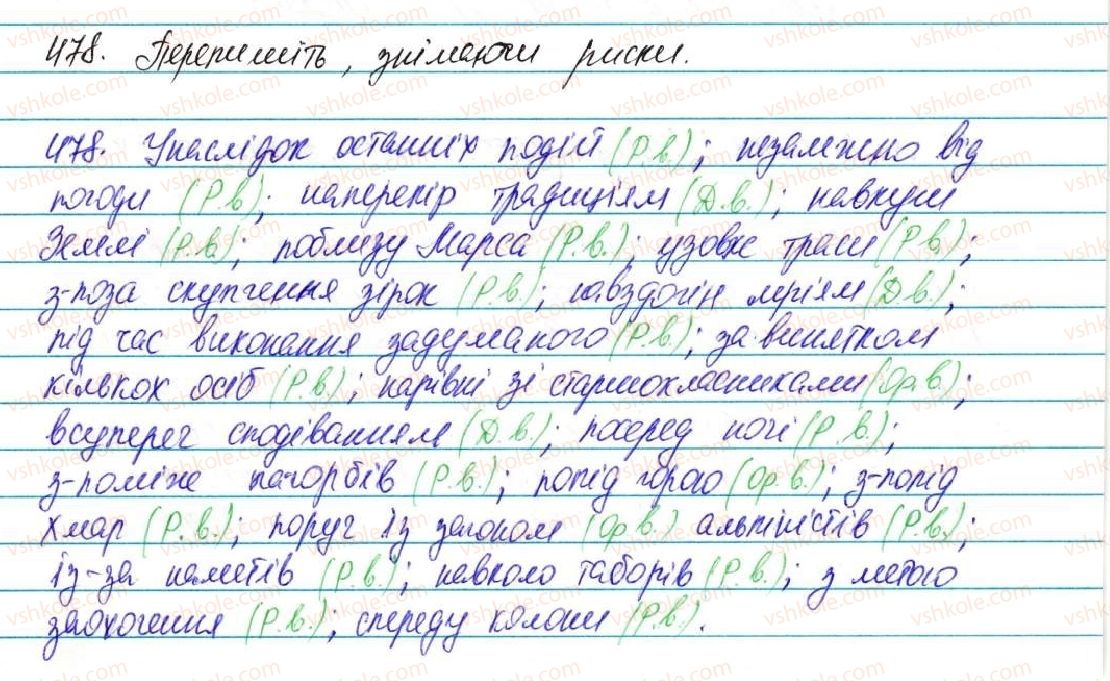 478. Перепишіть, знімаючи риски.
478. Унаслідок останніх подій (Р.в.); незалежно від
погоди (Р.в); наперекір традиціям (Д.в.); навкруги
Землі (Р.в); поблизу Марса (Р.в.); узовж траси (Р.в.);
з-поза скупчення зірок (Р.в.); навздогін мріям (Д.в.);
під час виконання задуманого (Р.в.); за винятком
кількох осіб (Р.в.); нарівні зі старшокласниками (Ор.в.);
всупереч сподіванням (Д.в.); посеред ночі (Р.в.);
з-поміж пагорбів (Р.в.); попід горою (Ор.в.); з-попід
хмар (Р.в.); поруч із загоном (Ор.в.) альпіністів (Р.в.);
із-за наметів (Р.в.); навколо таборів (Р.в.); з метою
заохочення (Р.в.); спереду колони (Р.в.).